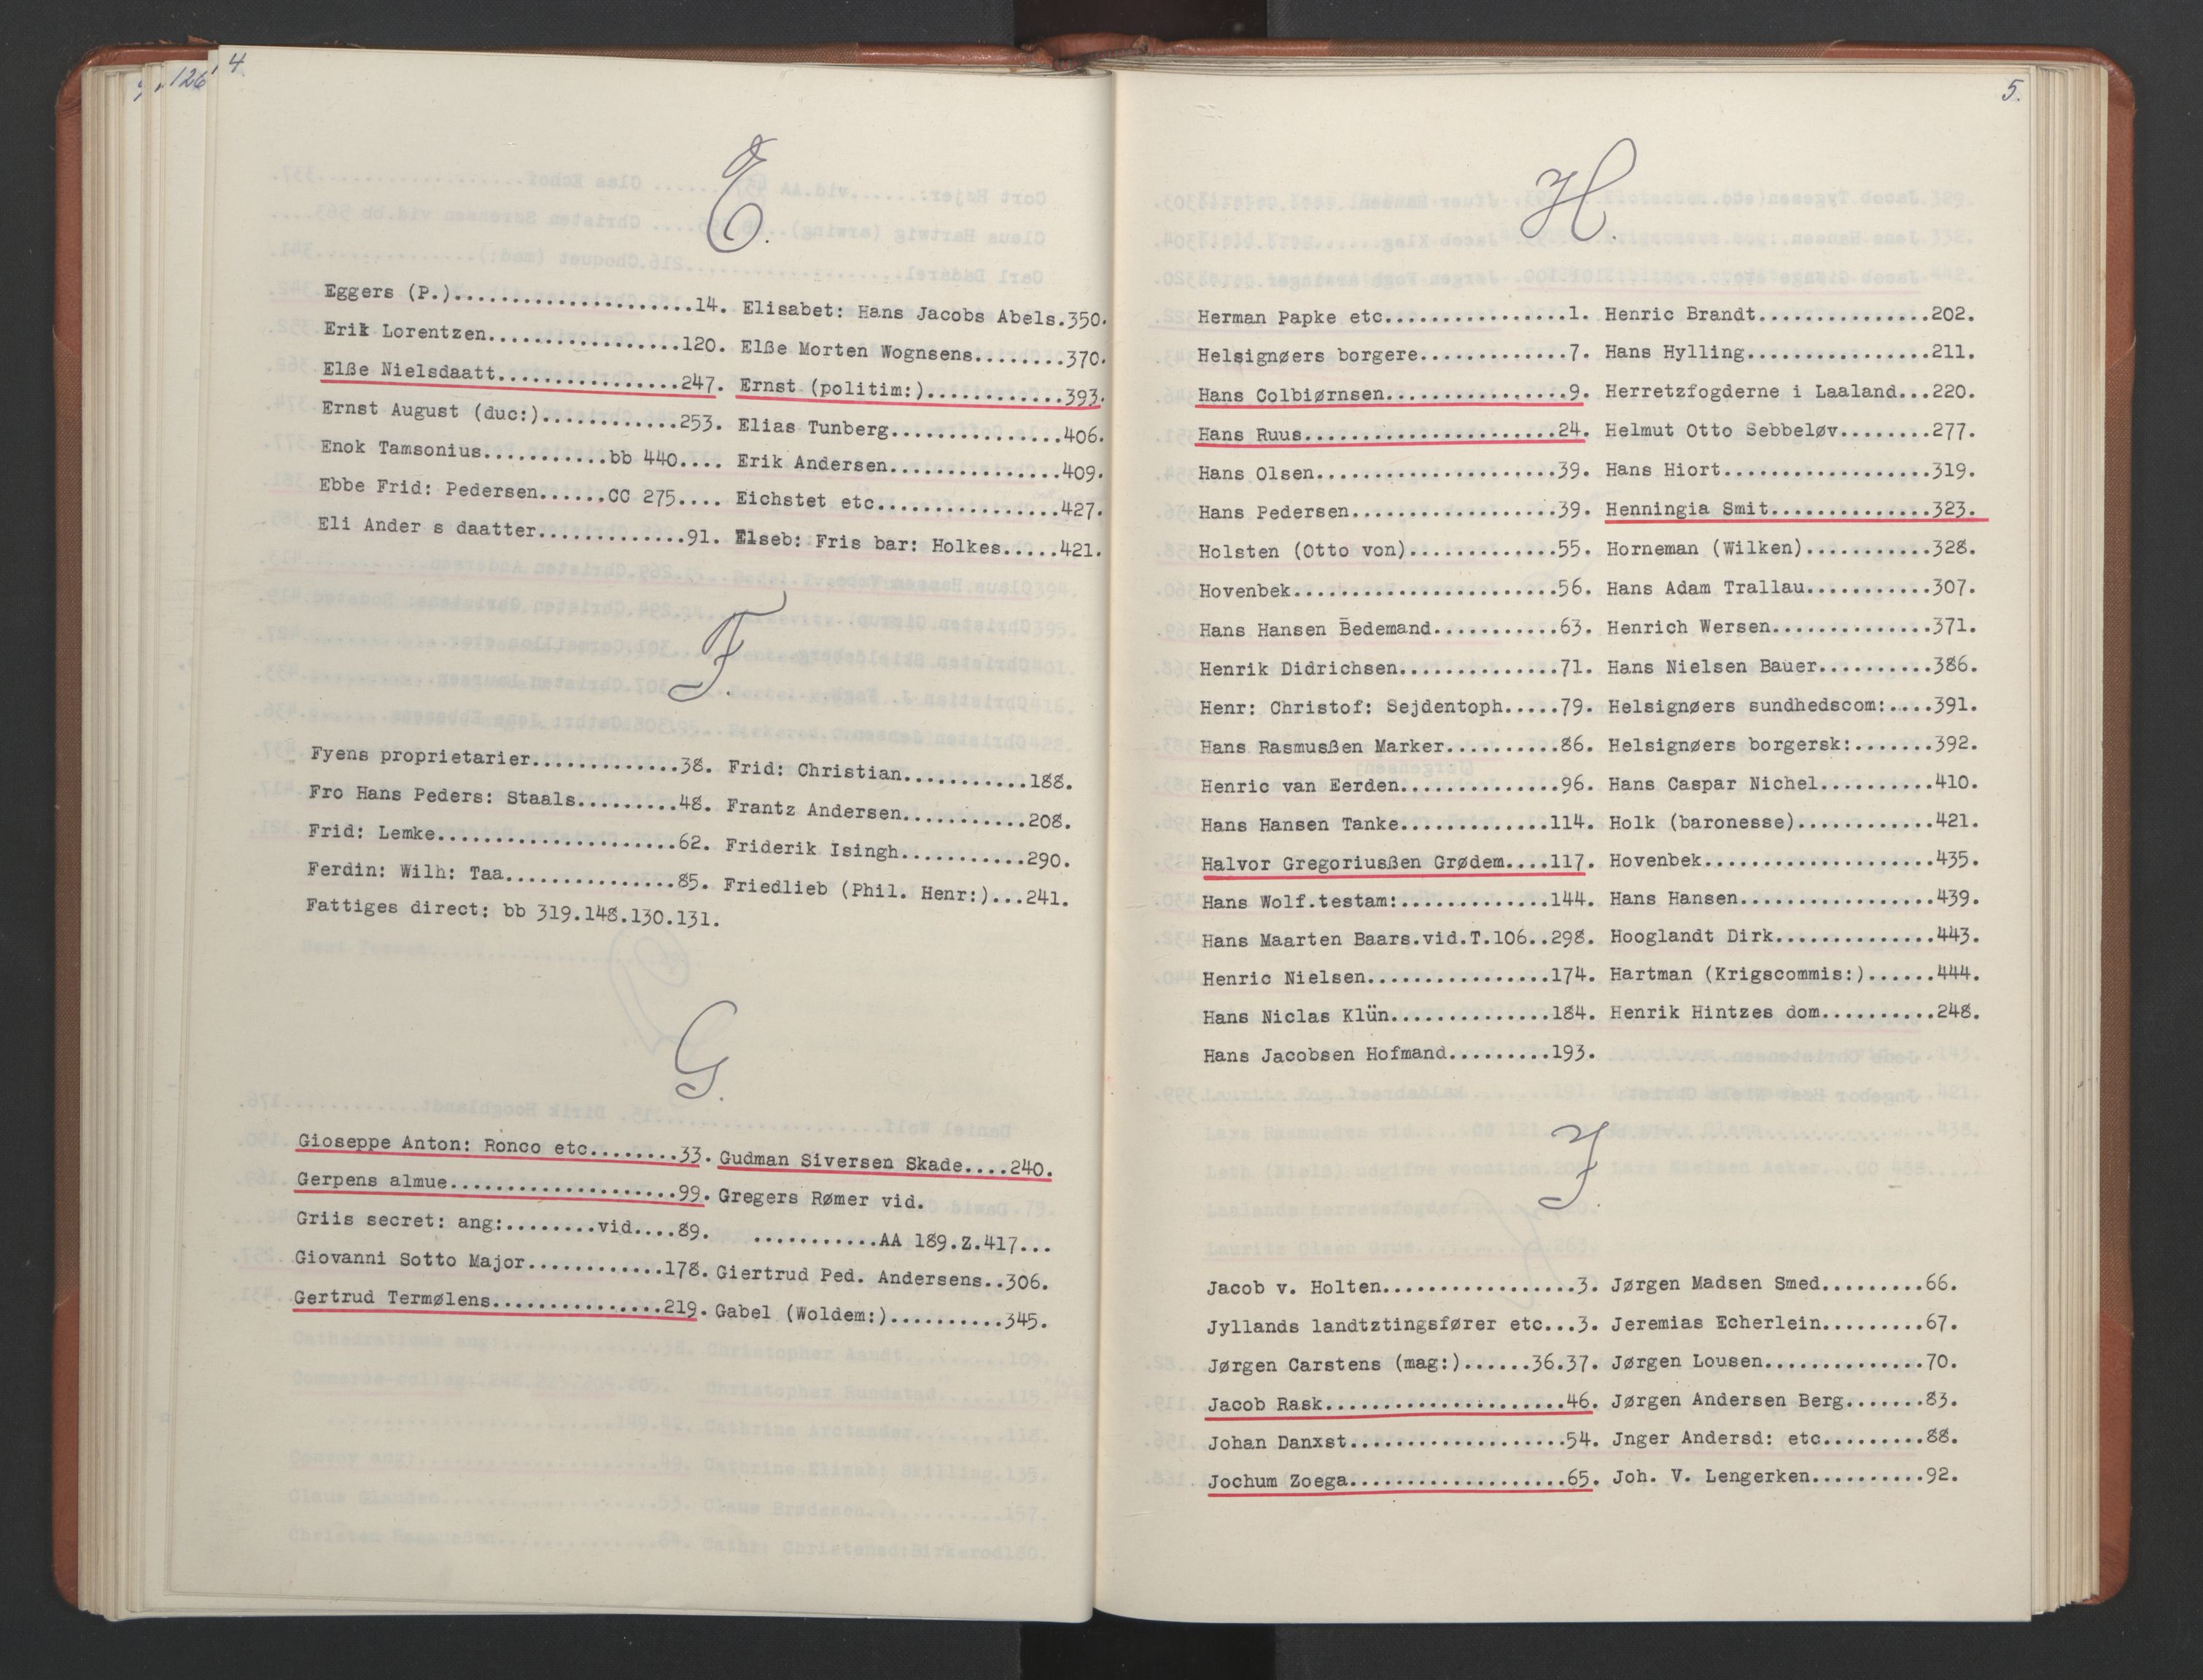 4.
126
E.
Eggers (P.).....................14. Elisabet: Hans Jacobs Abels.350.
Erik Lorentzen.................120. Elße Morten Wognsens........370.
Elße Nielsdaatt................247. Ernst (politim:)............393.
Ernst August (duc:)............253. Elias Tunberg...............406.
Enok Tamsonius...........bb 440.... Erik Andersen...............409.
Ebbe Frid: Pedersen......CC 275.... Eichstet etc................427.
Eli Ander s daatter.............91. Elseb: Fris bar: Holkes.....421.
F.
Fyens proprietarier.............38. Frid: Christian...........188.
Fro Hans Peders: Staals.........48. Frantz Andersen...........208.
Frid: Lemke.....................62. Friderik Isingh...........290.
Ferdin: Wilh: Taa...............85. Friedlieb (Phil. Henr:)...241.
Fattiges direct: bb 319.148.130.131.
G.
Gioseppe Anton: Ronco etc........33. Gudman Siversen Skade....240.
Gerpens almue....................99. Gregers Rømer vid.
Griis secret: ang:........vid....89. ...........AA 189.Z.417...
Giovanni Sotto Major............178. Giertrud Ped. Andersens..306.
Gertrud Termølens...............219. Gabel (Woldem:)..........345.
5.
H.
Herman Papke etc................1. Henric Brandt...............202.
Helsignøers borgere.............7. Hans Hylling................211.
Hans Colbiørnsen................9. Herretzfogderne i Laaland...220.
Hans Ruus......................24. Helmut Otto Sebbeløv........277.
Hans Olsen.....................39. Hans Hiort..................319.
Hans Pedersen..................39. Henningia Smit..............323.
Holsten (Otto von).............55. Horneman (Wilken)...........328.
Hovenbek.......................56. Hans Adam Trallau...........307.
Hans Hansen Bedemand...........63. Henrich Wersen..............371.
Henrik Didrichsen..............71. Hans Nielsen Bauer..........386.
Henr: Christof: Sejdentoph.....79. Helsignøers sundhedscom:....391.
Hans Rasmusßen Marker..........86. Helsignøers borgersk:.......392.
Henric van Eerden..............96. Hans Caspar Nichel..........410.
Hans Hansen Tanke.............114. Holk (baronesse)............421.
Halvor Gregoriusßen Grødem....117. Hovenbek....................435.
Hans Wolf.testam:.............144. Hans Hansen.................439.
Hans Maarten Baars.vid.T.106..298. Hooglandt Dirk..............443.
Henric Nielsen................174. Hartman (Krigscommis:)......444.
Hans Niclas Klün..............184. Henrik Hintzes dom..........248.
Hans Jacobsen Hofmand.........193.
J.
Jacob v. Holten.................3. Jørgen Madsen Smed.........66.
Jyllands landtztingsfører etc...3. Jeremias Echerlein.........67.
Jørgen Carstens (mag:)......36.37. Jørgen Lousen..............70.
Jacob Rask.....................46. Jørgen Andersen Berg.......83.
Johan Danxst...................54. Jnger Andersd: etc.........88.
Jochum Zoega...................65. Joh. V. Lengerken..........92.